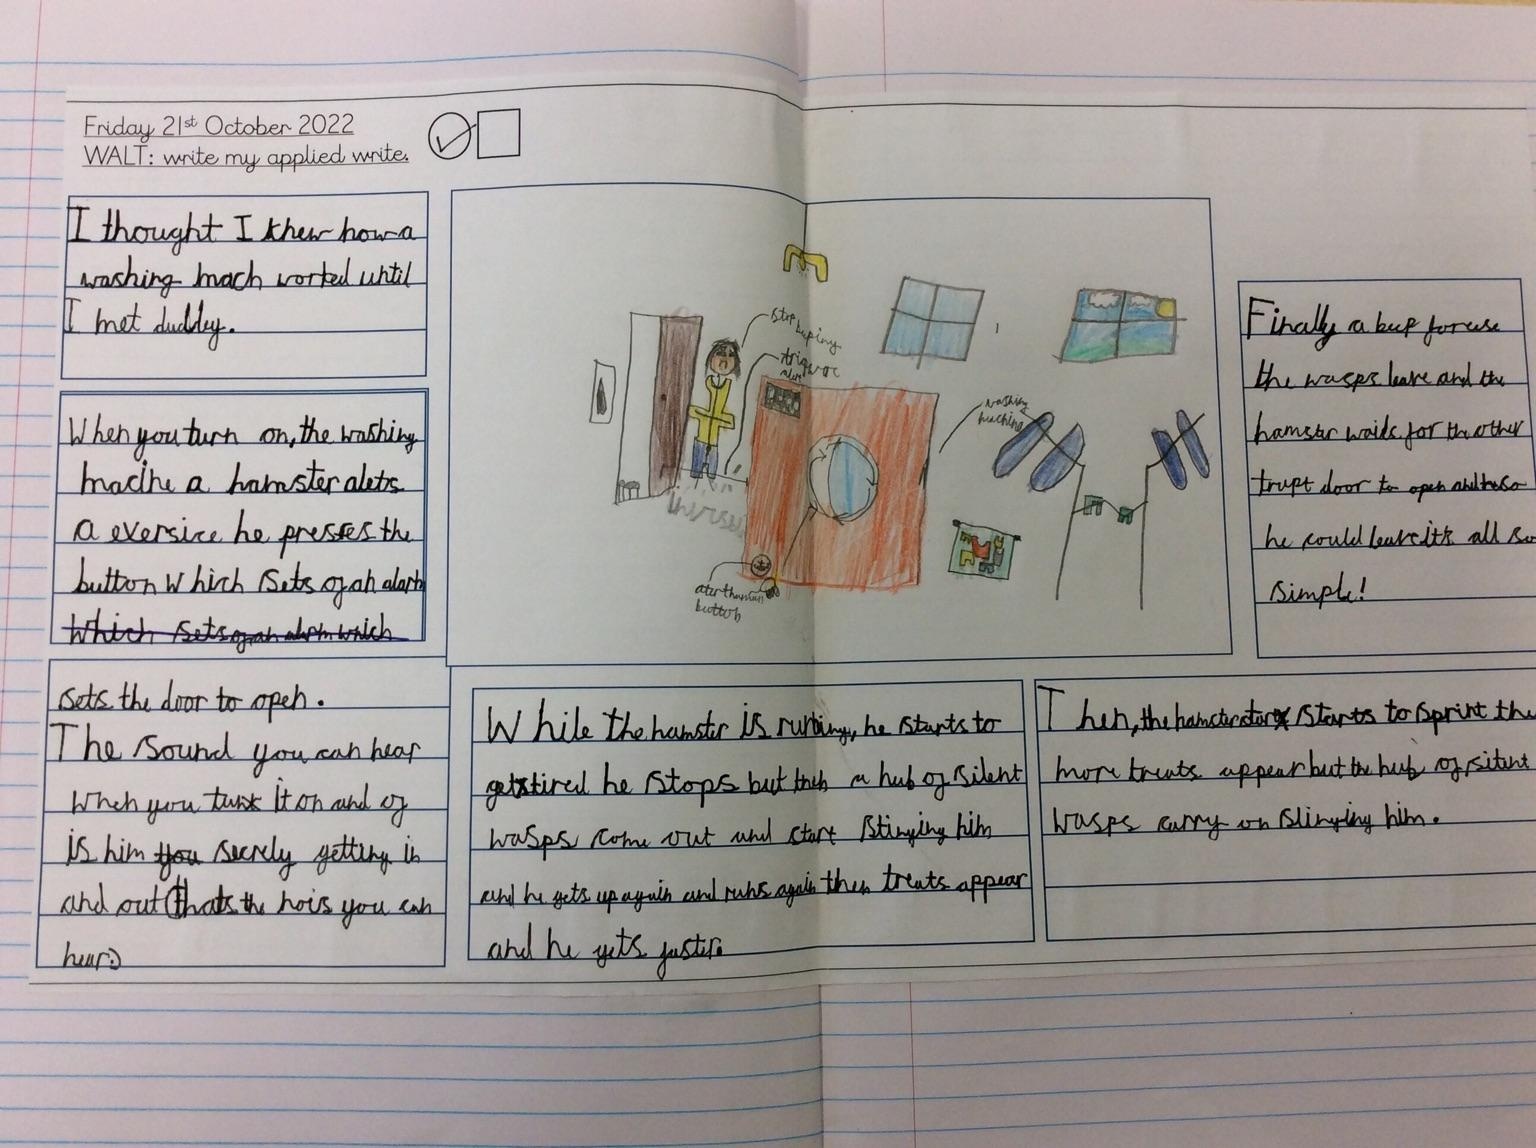 Friday 21st October 2022
WALT: write my applied write.
I thought I knew how a
washing mach worked until
I met duddey.
When you turn on, the washing
macihe a hamster alets
a exersice he presses the
button which sets of an alarm
which sets of an alarm which
sets the door to open.
The sound you can hear
when you turn it on and of
is him you secrely getting in
and out (thats the nois you can
hear.)
stop beeping
alarm
washing
machine
button
While the hamster is running, he starts to
get tired he stops but then a hub of silent
wasps come out and start stinging him
and he gets up again and runs again then treats appear
and he gets faster.
Then, the hamster starts to sprint the
more treats appear but the hub of silent
wasps carry on slinging him.
Finally a beep foruse
the wasps leave and the
hamster waids for the other
trapt door to open and so
he could leave it's all so
simple!